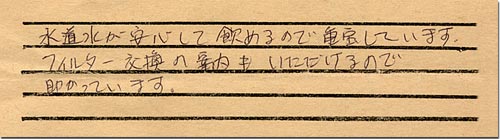 水道水が安心して飲めるので重宝しています。
フィルター交換の案内もいただけるので
助かっています。